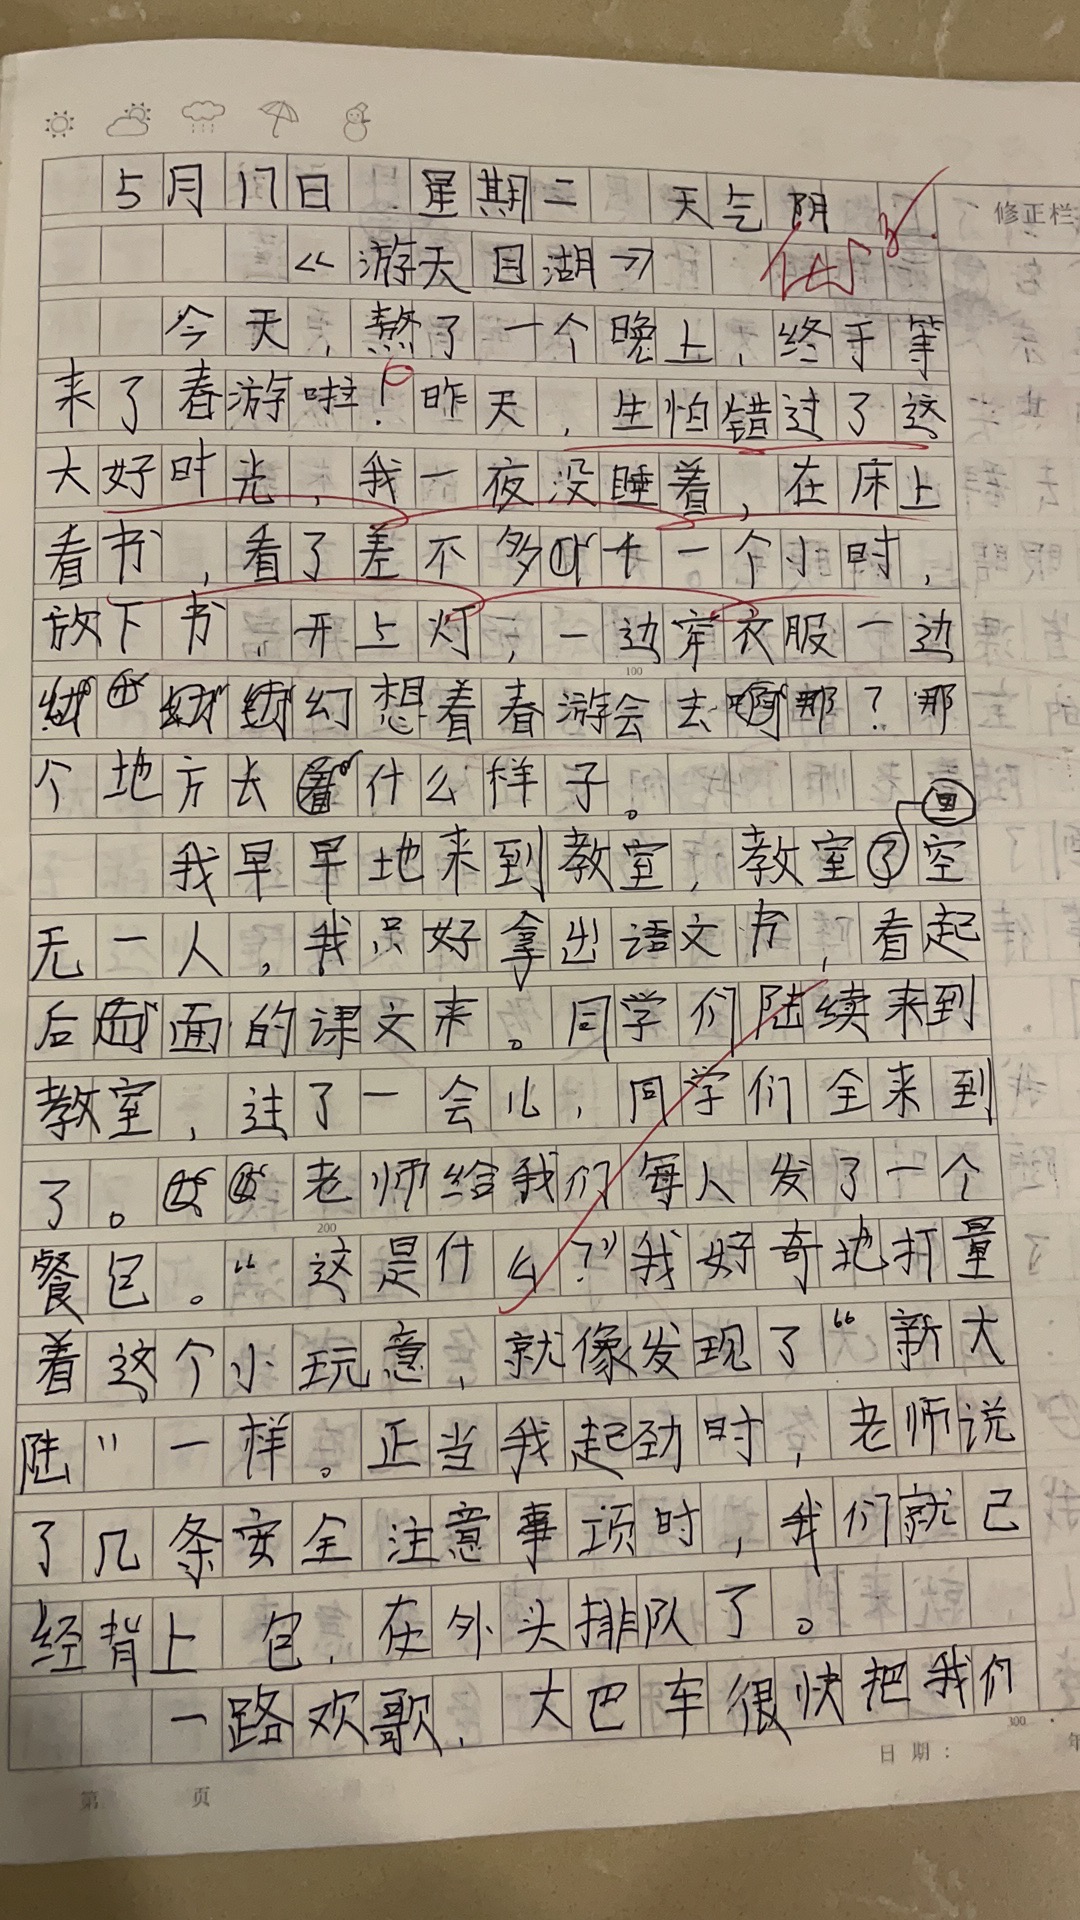 5月17日 星期二 天气阴
修正栏
《游天目湖》
今天，熬了一个晚上，终于等
来了春游啦！昨天，生怕错过了这
大好时光，我一夜没睡着，在床上
看书，看了差不多十一个小时，
放下书，开上灯，一边穿衣服一边
100
幻想着春游会去那？那
个地方长什么样子。
我早早地来到教室，教室里空
无一人，我只好拿出语文书，看起
后面的课文来。同学们陆续来到
教室，过了一会儿，同学们全来到
了。老师给我们每人发了一个
200
餐包。“这是什么？”我好奇地打量
着这个小玩意，就像发现了“新大
陆”一样。正当我起劲时，老师说
了几条安全注意事项时，我们就己
经背上包，在外头排队了。
一路欢歌，大巴车很快把我们
300
日期： 年
第 页